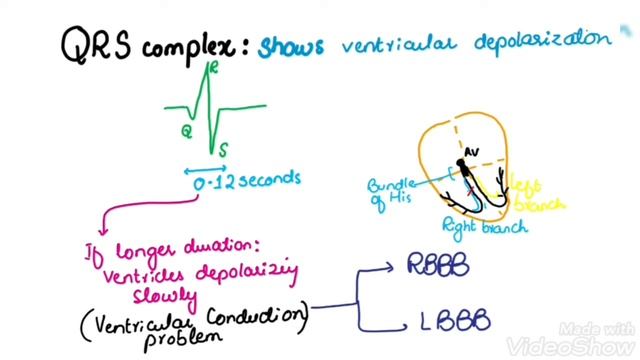 QRS complex: shows ventricular depolarization
R
Q
S
0.12 seconds
AV
Bundle
of His
Left
branch
Right branch
If longer duration:
Ventricles depolarizing
slowly
(Ventricular Conduction
problem)
RBBB
LBBB
Made with
VideoShow